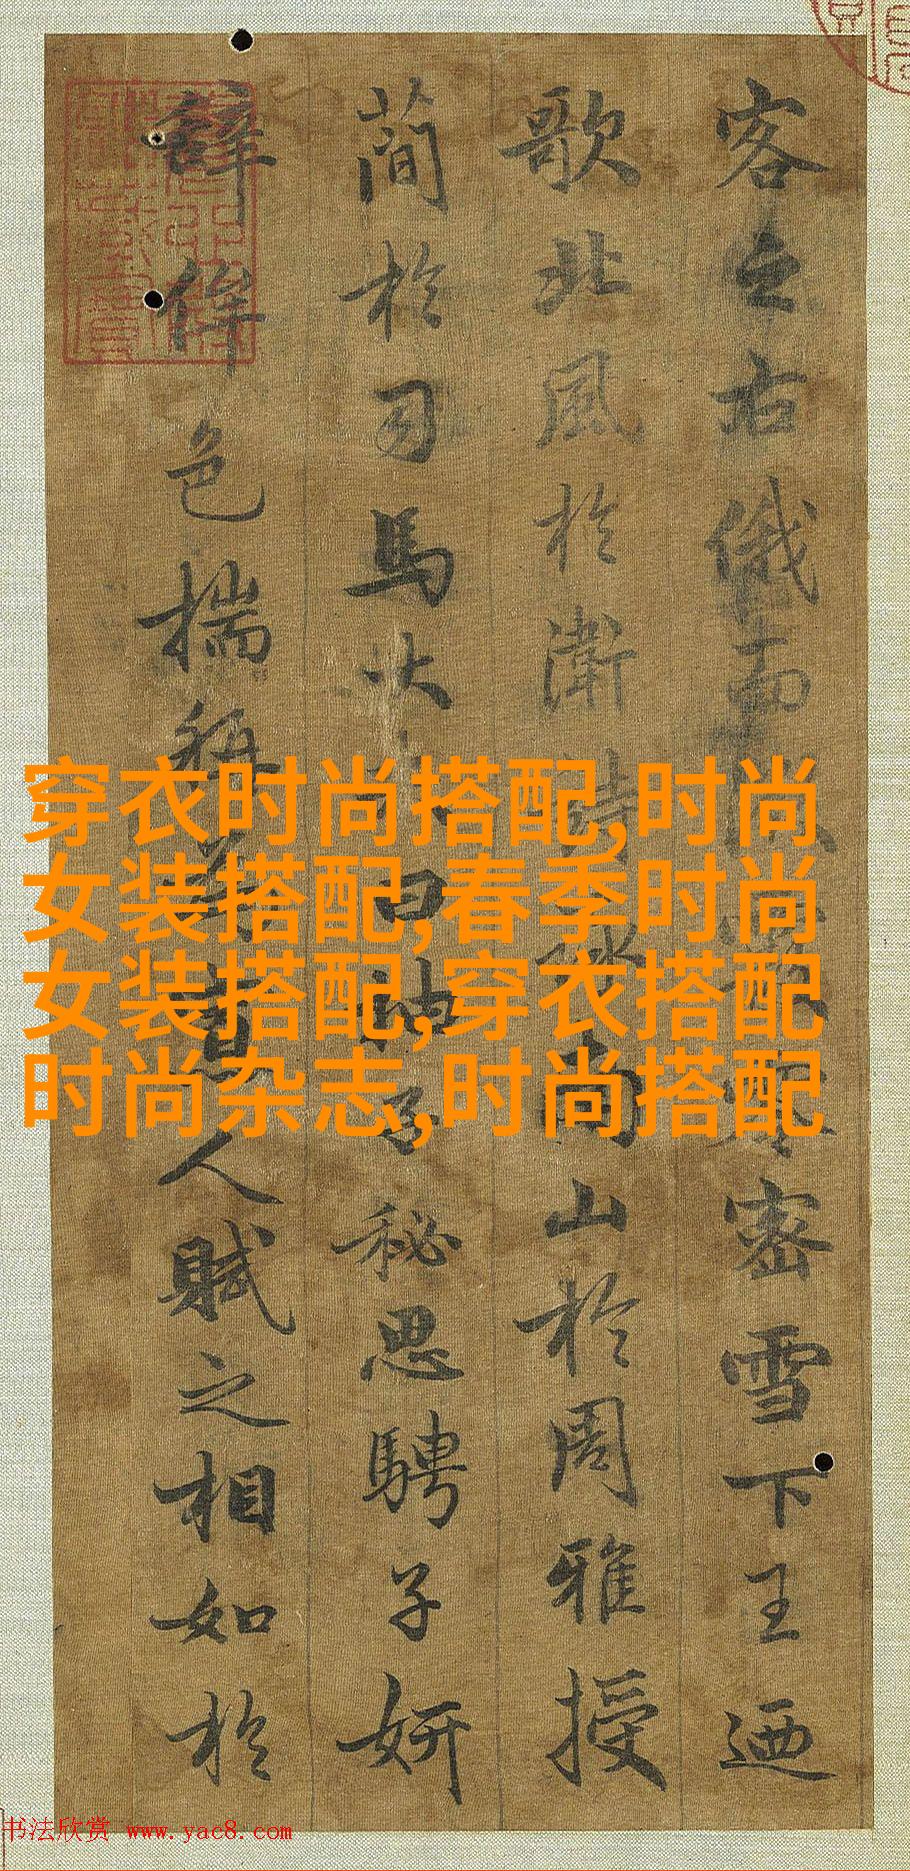 客之右俄而霰零密雪下王迺
歌北風於衛詩詠南山於周雅授
簡於司馬大夫曰抽子秘思騁子妍
辭侔色揣稱為寡人賦之相如於
穿衣时尚搭配,时尚
女装搭配,春季时尚
女装搭配,穿衣搭配
时尚杂志,时尚搭配
书法欣赏 www.yac8.com